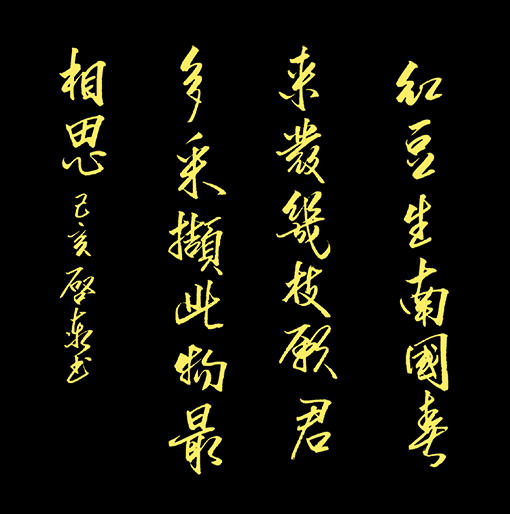 红豆生南國春
来發幾枝願君
多采擷此物最
相思
己亥啓泉书